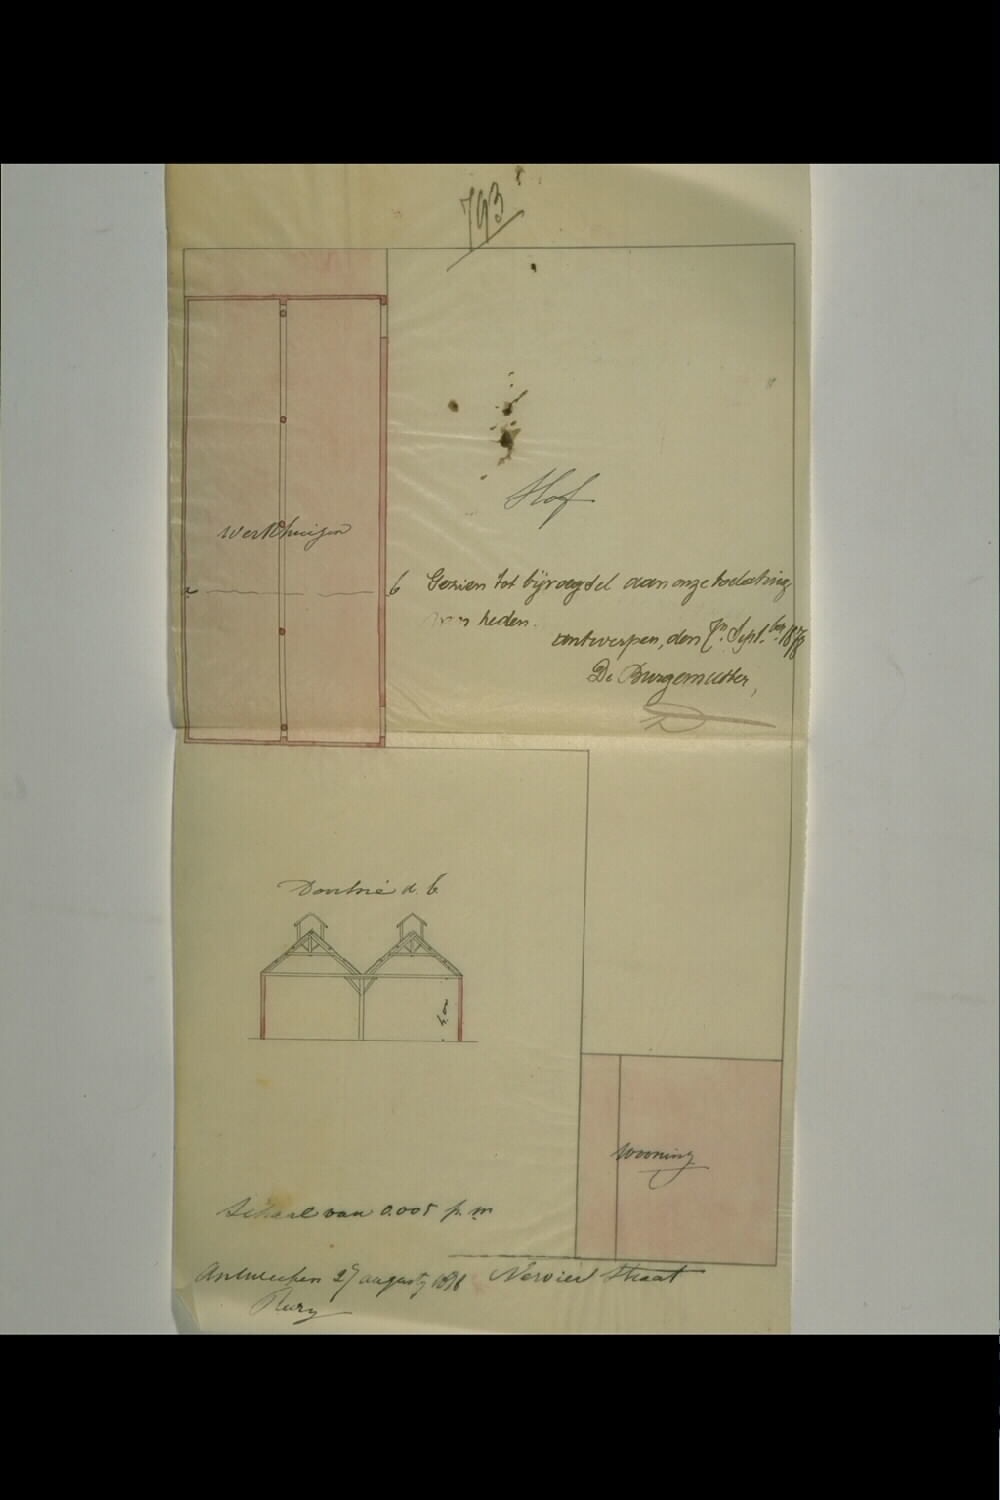 793
Hof
Werkhuizen
a
b
Gezien tot bijvoegsel aan onze toelating
van heden.
Antwerpen, den 7n Sept.ber 1878
De Burgemeester,
Doorsné a. b.
4.00
Wooning
Schaal van 0.005 p. m
Antwerpen 27 augusty 1878
Vervier Straat